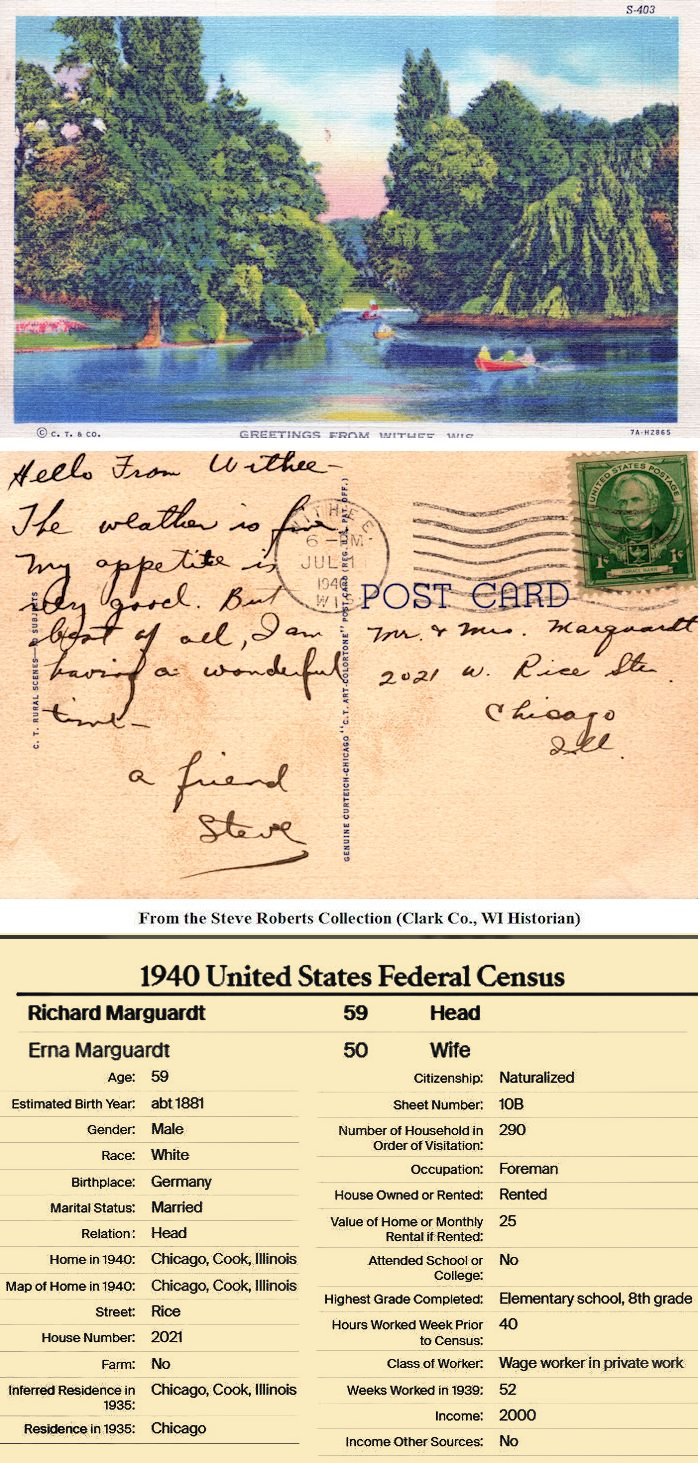 S-403
© C. T. & CO.
GREETINGS FROM WITHEE, WIS
7A-H2865
Hello From Withee—
The weather is fine
My appetite is
very good. But
best of all, I am
having a wonderful
time—
a friend
Steve
C. T. RURAL SCENES—10 SUBJECTS
WITHEE
6 -PM
JUL 1
1940
WIS
GENUINE CURTEICH-CHICAGO "C. T. ART-COLORTONE" POST CARD (REG. U.S. PAT. OFF.)
UNITED STATES POSTAGE
1¢ 1¢
HORACE MANN
POST CARD
Mr. & Mrs. Marquardt
2021 W. Rice Str.
Chicago
Ill.
From the Steve Roberts Collection (Clark Co., WI Historian)
1940 United States Federal Census
Richard Marguardt 59 Head
Erna Marguardt 50 Wife
Age: 59
Estimated Birth Year: abt 1881
Gender: Male
Race: White
Birthplace: Germany
Marital Status: Married
Relation: Head
Home in 1940: Chicago, Cook, Illinois
Map of Home in 1940: Chicago, Cook, Illinois
Street: Rice
House Number: 2021
Farm: No
Inferred Residence in
1935: Chicago, Cook, Illinois
Residence in 1935: Chicago
Citizenship: Naturalized
Sheet Number: 10B
Number of Household in
Order of Visitation: 290
Occupation: Foreman
House Owned or Rented: Rented
Value of Home or Monthly
Rental if Rented: 25
Attended School or
College: No
Highest Grade Completed: Elementary school, 8th grade
Hours Worked Week Prior
to Census: 40
Class of Worker: Wage worker in private work
Weeks Worked in 1939: 52
Income: 2000
Income Other Sources: No